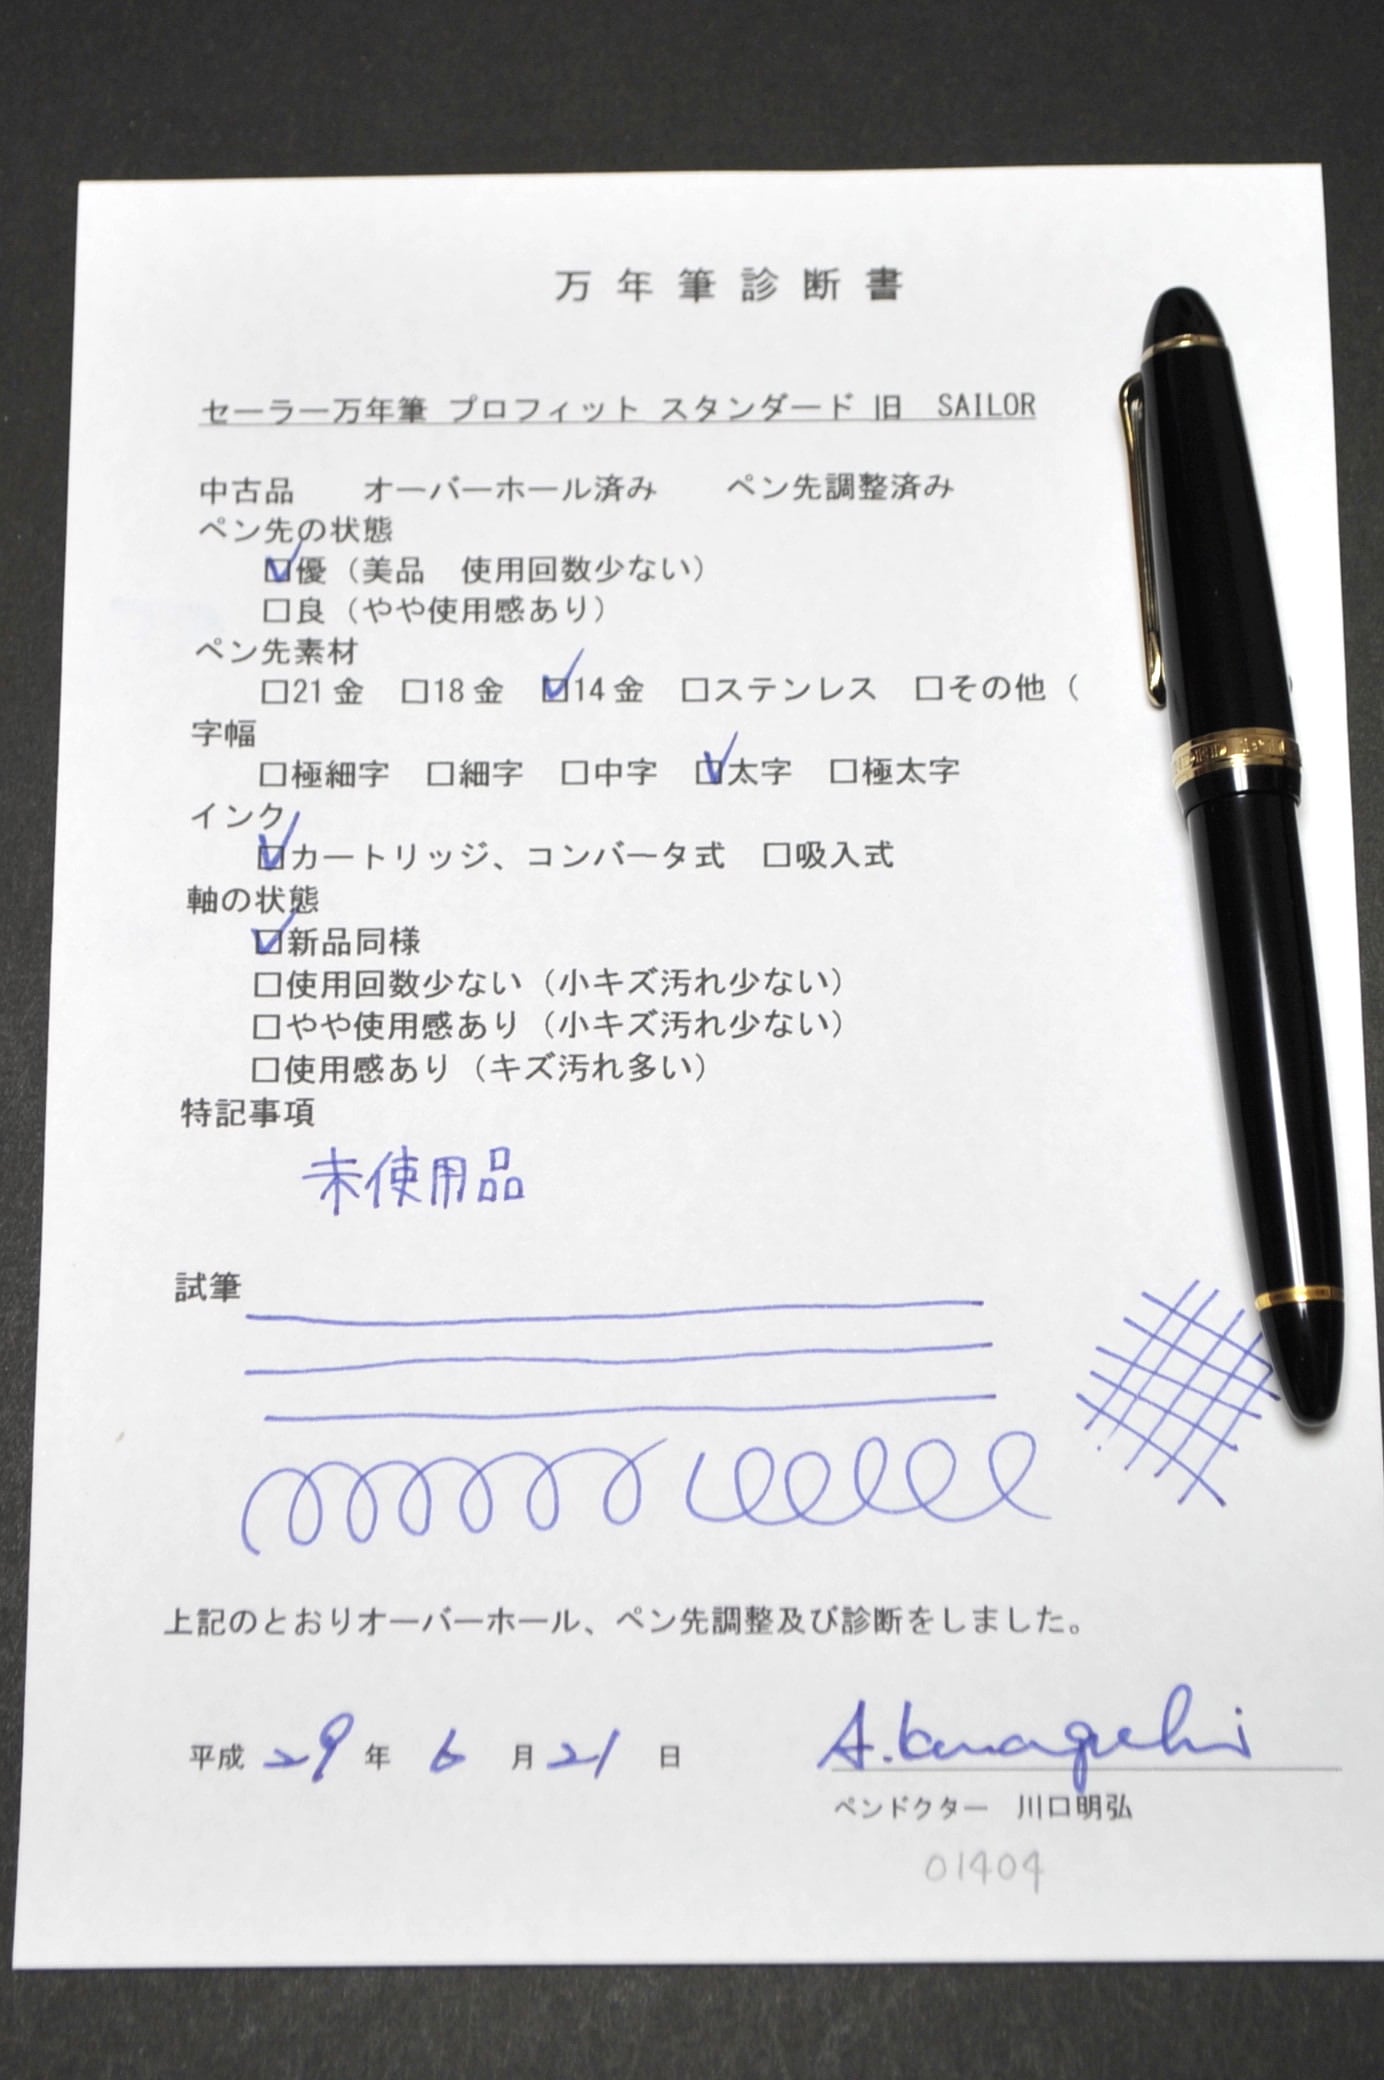 万年筆診断書
セーラー万年筆 プロフィット スタンダード 旧　SAILOR
中古品　　オーバーホール済み　　ペン先調整済み
ペン先の状態
☑優（美品　使用回数少ない）
□良（やや使用感あり）
ペン先素材
□21金　□18金　☑14金　□ステンレス　□その他（
字幅
□極細字　□細字　□中字　☑太字　□極太字
インク
☑カートリッジ、コンバータ式　□吸入式
軸の状態
☑新品同様
□使用回数少ない（小キズ汚れ少ない）
□やや使用感あり（小キズ汚れ少ない）
□使用感あり（キズ汚れ多い）
特記事項
未使用品
試筆
上記のとおりオーバーホール、ペン先調整及び診断をしました。
平成 29 年 6 月 21 日　A.Kawaguchi
ペンドクター　川口明弘
01404